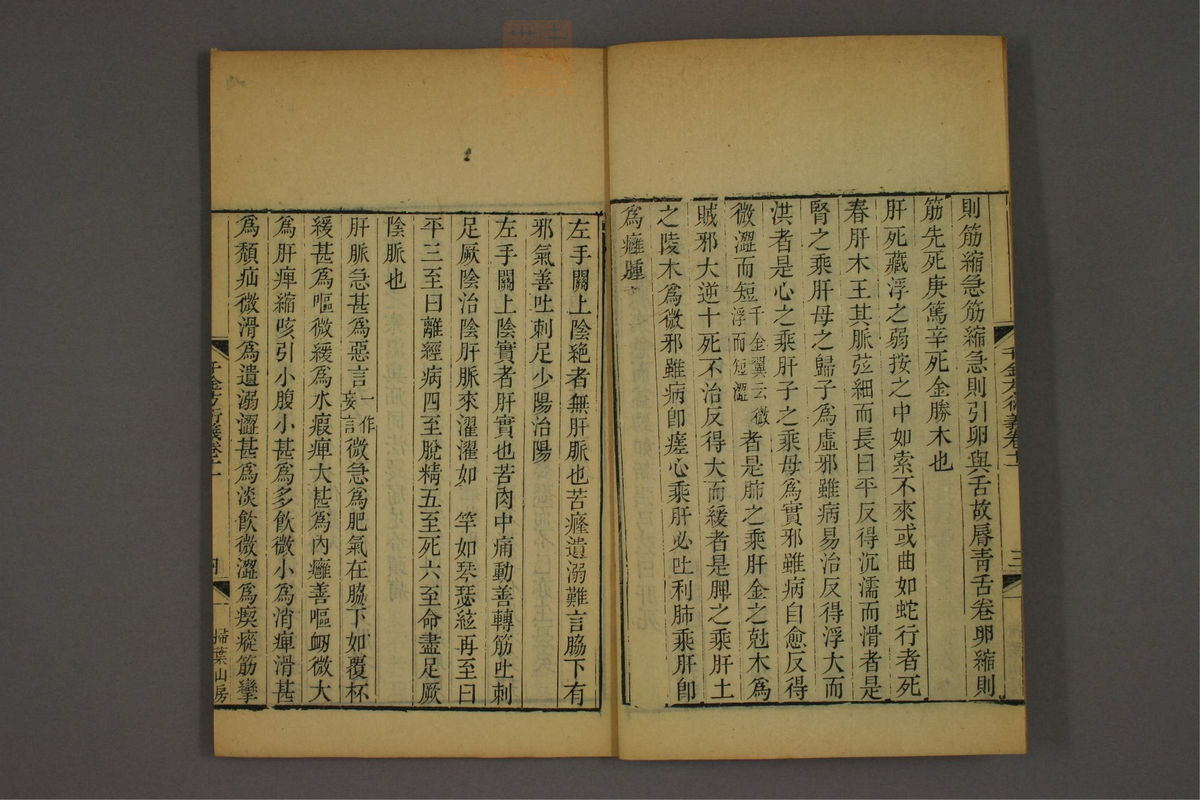 則筋縮急筋縮急則引卵與舌故脣青舌卷卵縮則
筋先死庚篤辛死金勝木也
肝死藏浮之弱按之中如索不來或曲如蛇行者死
春肝木王其脈弦細而長曰平反得沉濡而滑者是
腎之乘肝母之歸子爲虛邪雖病易治反得浮大而
洪者是心之乘肝子之乘母爲實邪雖病自愈反得
微澀而短千金翼云微浮而短澀者是肺之乘肝金之尅木爲
賊邪大逆十死不治反得大而緩者是脾之乘肝土
之陵木爲微邪雖病卽瘥心乘肝必吐利肺乘肝卽
爲癰腫
千金方衍義卷十一
三
左手關上陰絶者無肝脈也苦癃遺溺難言脇下有
邪氣善吐刺足少陽治陽
左手關上陰實者肝實也苦肉中痛動善轉筋吐刺
足厥陰治陰肝脈來濯濯如 竿如琴瑟絃再至曰
平三至曰離經病四至脫精五至死六至命盡足厥
陰脈也
肝脈急甚爲惡言一作妄言微急爲肥氣在脇下如覆杯
緩甚爲嘔微緩爲水瘕痺大甚爲內癰善嘔衂微大
爲肝痺縮咳引小腹小甚爲多飮微小爲消痺滑甚
爲頹疝微滑爲遺溺澀甚爲淡飮微澀爲瘈瘲筋攣
千金方衍義卷十一
四
掃葉山房